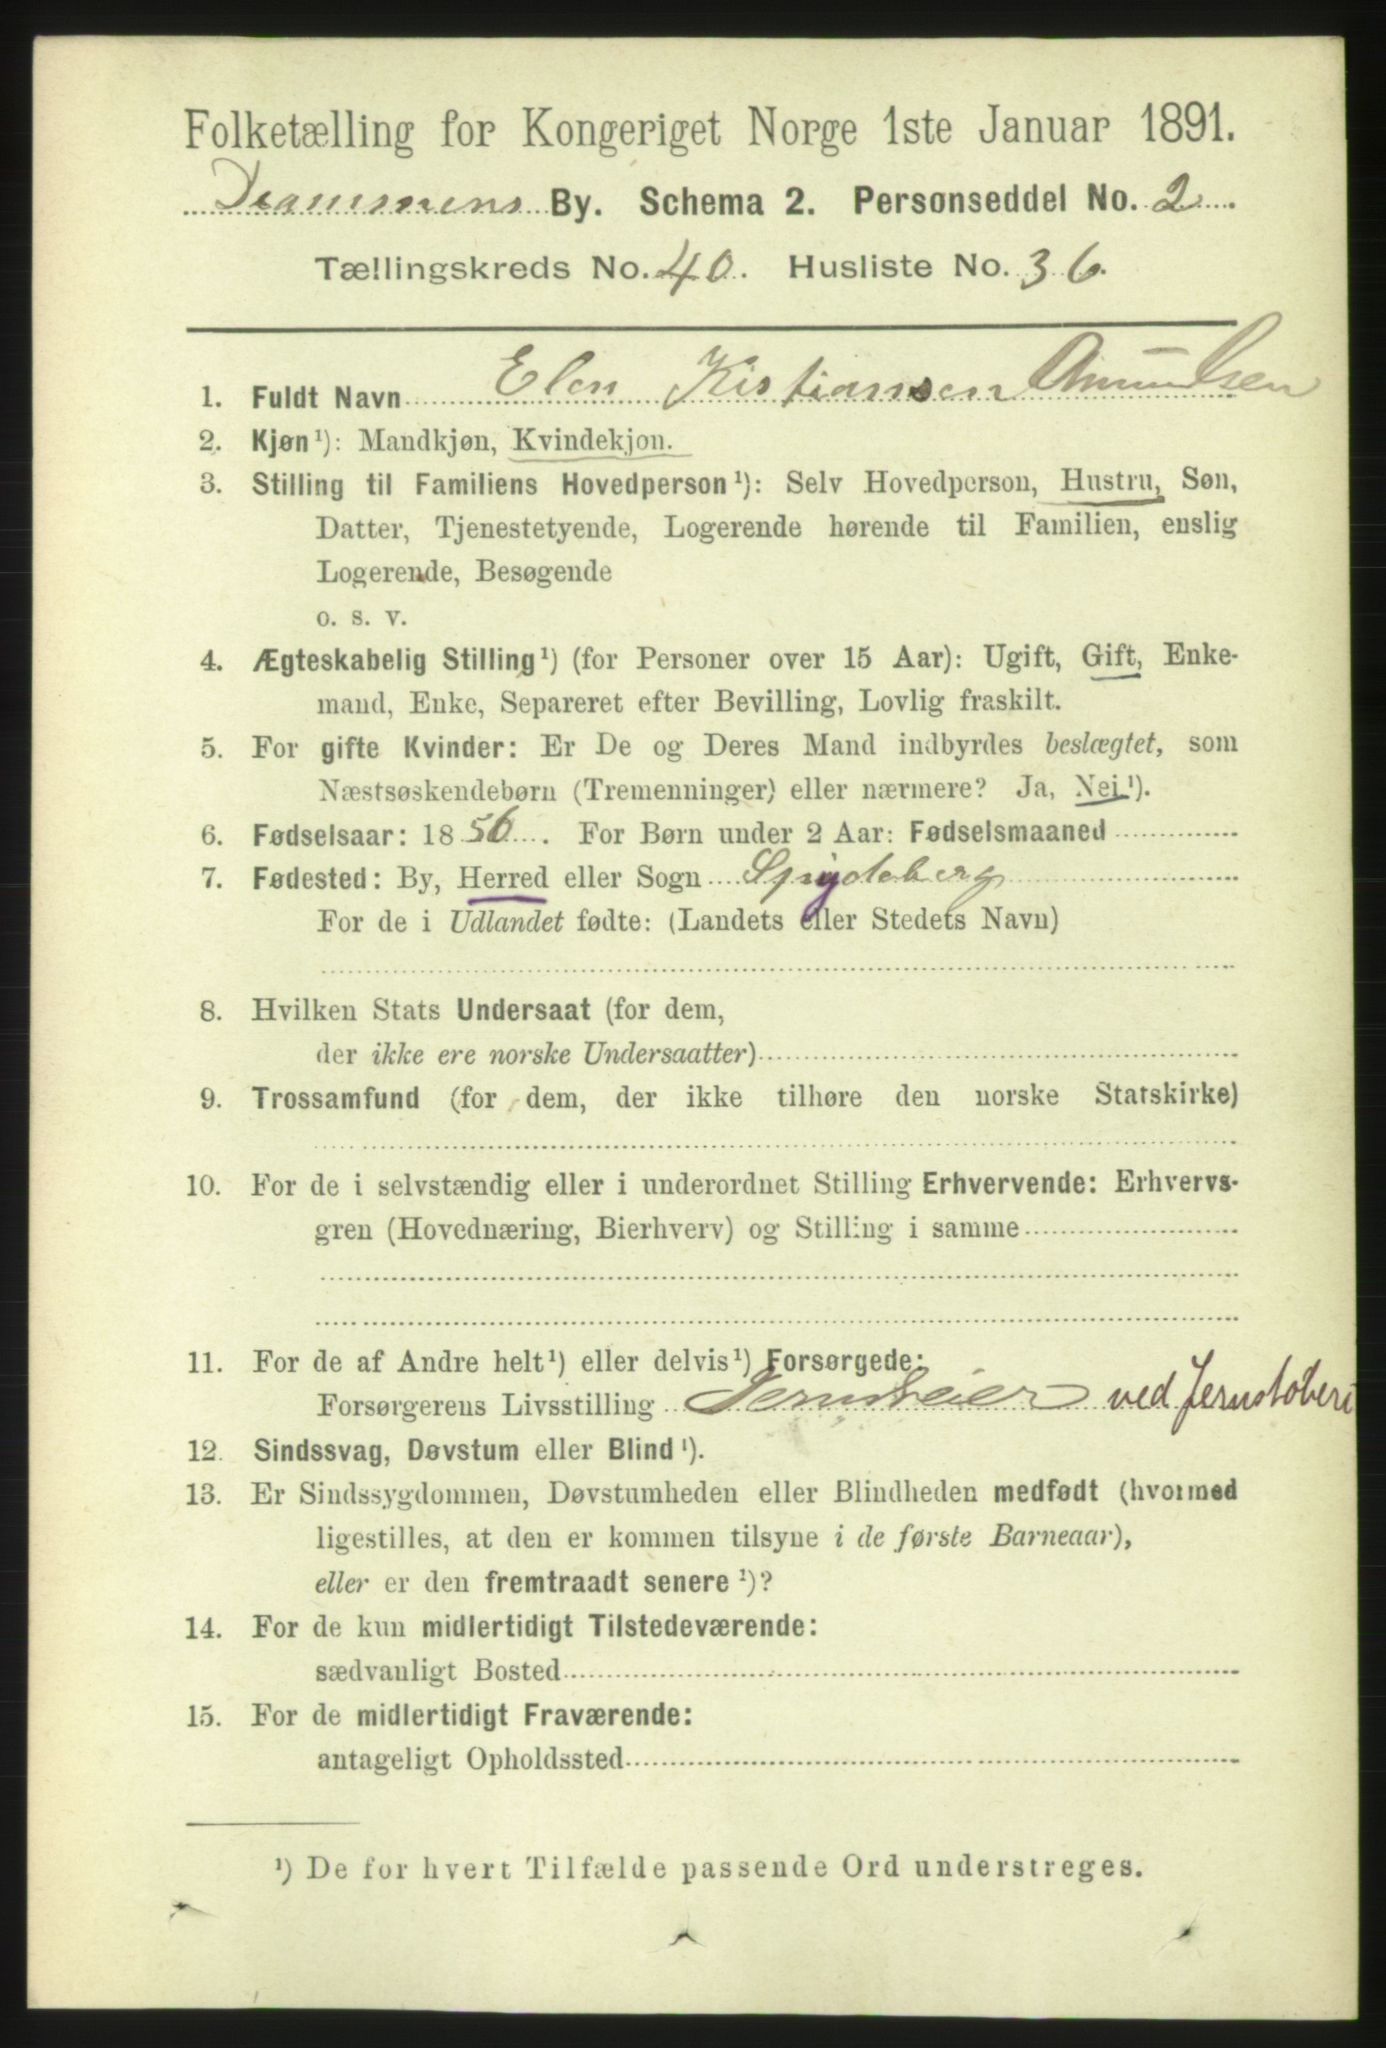 Folketælling for Kongeriget Norge 1ste Januar 1891.
Drammens By. Schema 2. Personseddel No. 2.
Tællingskreds No. 40. Husliste No. 36.
1. Fuldt Navn Elen Kistiansen Amundsen
2. Kjøn¹): Mandkjøn, Kvindekjøn.
3. Stilling til Familiens Hovedperson¹): Selv Hovedperson, Hustru, Søn,
Datter, Tjenestetyende, Logerende hørende til Familien, enslig
Logerende, Besøgende
o. s. v.
4. Ægteskabelig Stilling¹) (for Personer over 15 Aar): Ugift, Gift, Enke-
mand, Enke, Separeret efter Bevilling, Lovlig fraskilt.
5. For gifte Kvinder: Er De og Deres Mand indbyrdes beslægtet, som
Næstsøskendebørn (Tremenninger) eller nærmere? Ja, Nei¹).
6. Fødselsaar: 1856. For Børn under 2 Aar: Fødselsmaaned
7. Fødested: By, Herred eller Sogn Spydeberg
For de i Udlandet fødte: (Landets eller Stedets Navn)
8. Hvilken Stats Undersaat (for dem,
der ikke ere norske Undersaatter)
9. Trossamfund (for dem, der ikke tilhøre den norske Statskirke)
10. For de i selvstændig eller i underordnet Stilling Erhvervende: Erhvervs-
gren (Hovednæring, Bierhverv) og Stilling i samme
11. For de af Andre helt¹) eller delvis¹) Forsørgede:
Forsørgerens Livsstilling ved Jernstøberi
12. Sindssvag, Døvstum eller Blind¹).
13. Er Sindssygdommen, Døvstumheden eller Blindheden medfødt (hvormed
ligestilles, at den er kommen tilsyne i de første Barneaar),
eller er den fremtraadt senere¹)?
14. For de kun midlertidigt Tilstedeværende:
sædvanligt Bosted
15. For de midlertidigt Fraværende:
antageligt Opholdssted
¹) De for hvert Tilfælde passende Ord understreges.